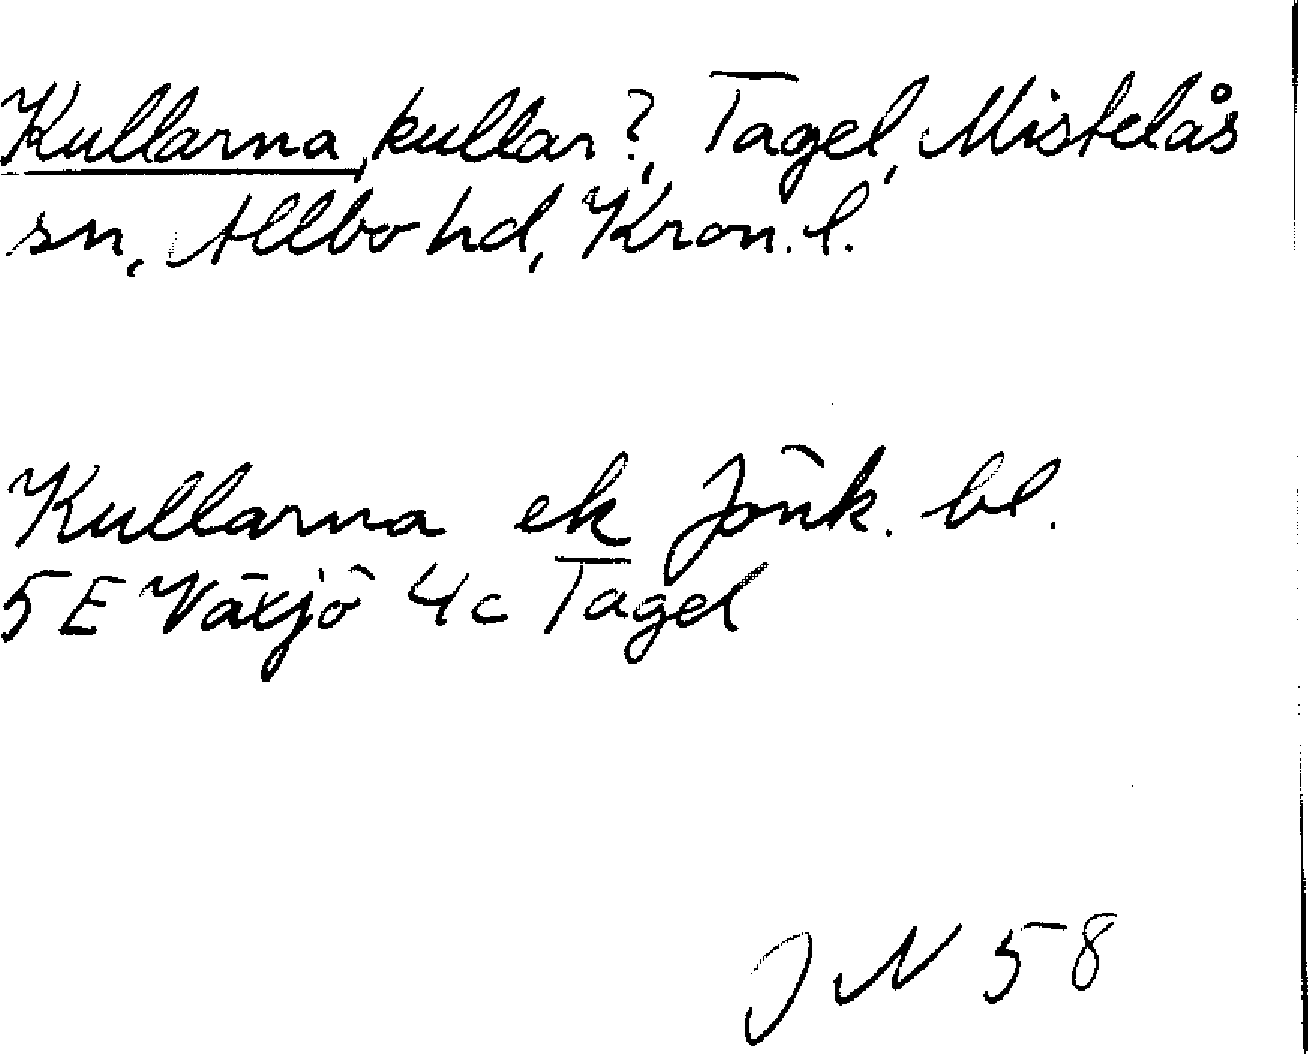 Kullarna, kullar?, Tagel, Mistelås
sn, Allbo hd, Kron. l.
Kullarna ek Jönk. bl.
5E Växjö 4c Tagel
J N 58